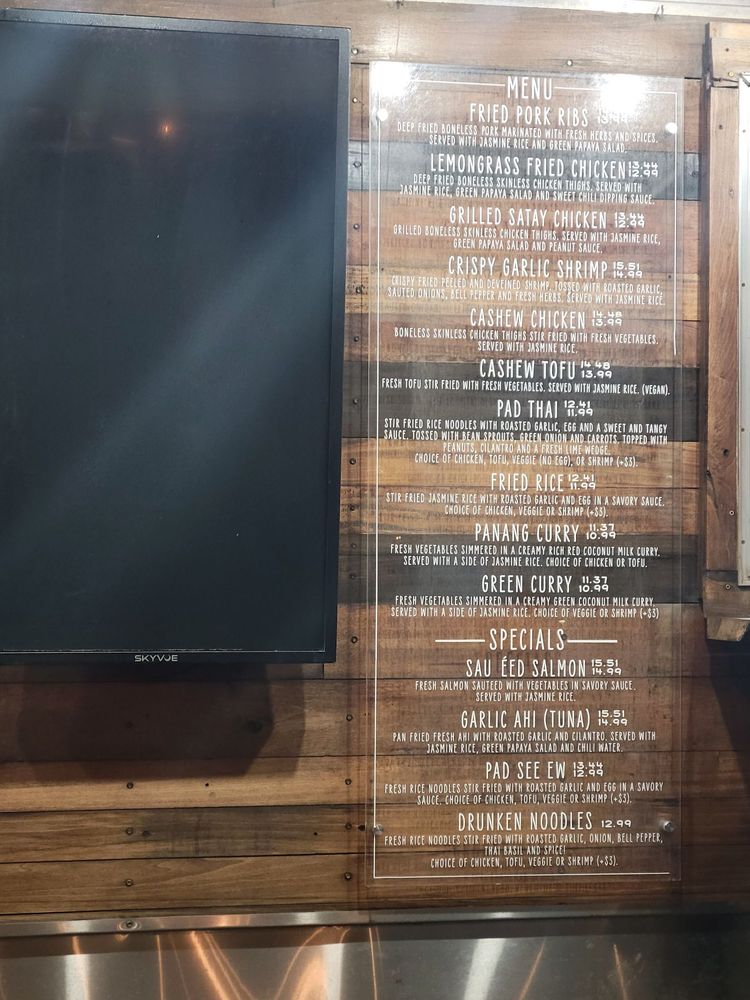 SKYVUE
MENU
FRIED PORK RIBS 13.99
DEEP FRIED BONELESS PORK MARINATED WITH FRESH HERBS AND SPICES.
SERVED WITH JASMINE RICE AND GREEN PAPAYA SALAD.
LEMONGRASS FRIED CHICKEN 13.44 12.99
DEEP FRIED BONELESS SKINLESS CHICKEN THIGHS. SERVED WITH
JASMINE RICE, GREEN PAPAYA SALAD AND SWEET CHILI DIPPING SAUCE.
GRILLED SATAY CHICKEN 13.44 12.99
GRILLED BONELESS SKINLESS CHICKEN THIGHS. SERVED WITH JASMINE RICE,
GREEN PAPAYA SALAD AND PEANUT SAUCE.
CRISPY GARLIC SHRIMP 15.51 14.99
CRISPY FRIED PEELED AND DEVEINED SHRIMP. TOSSED WITH ROASTED GARLIC,
SAUTED ONIONS, BELL PEPPER AND FRESH HERBS. SERVED WITH JASMINE RICE.
CASHEW CHICKEN 14.48 13.99
BONELESS SKINLESS CHICKEN THIGHS STIR FRIED WITH FRESH VEGETABLES.
SERVED WITH JASMINE RICE.
CASHEW TOFU 14.48 13.99
FRESH TOFU STIR FRIED WITH FRESH VEGETABLES. SERVED WITH JASMINE RICE. (VEGAN).
PAD THAI 12.41 11.99
STIR FRIED RICE NOODLES WITH ROASTED GARLIC, EGG AND A SWEET AND TANGY
SAUCE. TOSSED WITH BEAN SPROUTS, GREEN ONION AND CARROTS. TOPPED WITH
PEANUTS, CILANTRO AND A FRESH LIME WEDGE.
CHOICE OF CHICKEN, TOFU, VEGGIE (NO EGG), OR SHRIMP (+$3).
FRIED RICE 12.41 11.99
STIR FRIED JASMINE RICE WITH ROASTED GARLIC AND EGG IN A SAVORY SAUCE.
CHOICE OF CHICKEN, VEGGIE OR SHRIMP (+$3).
PANANG CURRY 11.37 10.99
FRESH VEGETABLES SIMMERED IN A CREAMY RICH RED COCONUT MILK CURRY.
SERVED WITH A SIDE OF JASMINE RICE. CHOICE OF CHICKEN OR TOFU.
GREEN CURRY 11.37 10.99
FRESH VEGETABLES SIMMERED IN A CREAMY GREEN COCONUT MILK CURRY.
SERVED WITH A SIDE OF JASMINE RICE. CHOICE OF VEGGIE OR SHRIMP (+$3)
SPECIALS
SAU ÉED SALMON 15.51 14.99
FRESH SALMON SAUTEED WITH VEGETABLES IN SAVORY SAUCE.
SERVED WITH JASMINE RICE.
GARLIC AHI (TUNA) 15.51 14.99
PAN FRIED FRESH AHI WITH ROASTED GARLIC AND CILANTRO. SERVED WITH
JASMINE RICE, GREEN PAPAYA SALAD AND CHILI WATER.
PAD SEE EW 13.44 12.99
FRESH RICE NOODLES STIR FRIED WITH ROASTED GARLIC AND EGG IN A SAVORY
SAUCE. CHOICE OF CHICKEN, TOFU, VEGGIE OR SHRIMP (+$3).
DRUNKEN NOODLES 12.99
FRESH RICE NOODLES STIR FRIED WITH ROASTED GARLIC, ONION, BELL PEPPER,
THAI BASIL AND SPICE!
CHOICE OF CHICKEN, TOFU, VEGGIE OR SHRIMP (+$3).